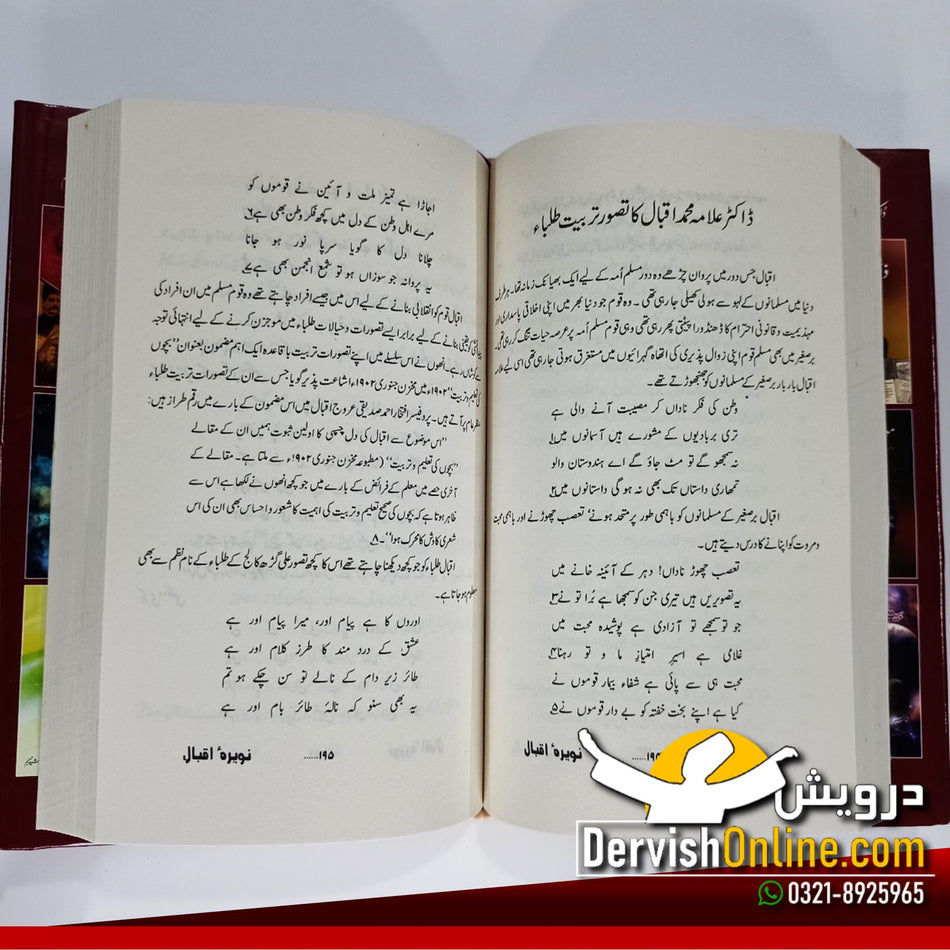 ڈاکٹر علامہ محمد اقبال کا تصور تربیت طلباء
اقبال جس دور میں پروان چڑھے وہ دور مسلم اُمہ کے لیے ایک بھیانک زمانہ تھا۔ ہر طرف
دنیا میں مسلمانوں کے لہو سے ہولی کھیلی جا رہی تھی۔ وہ قوم جو دنیا بھر میں اپنی اخلاقی پاسداری اور
تہذیبیت و قانونی احترام کا ڈھنڈورا پیٹتی پھر رہی تھی وہی قوم مسلم اُمہ پر عرصہ حیات تنگ کر رہی تھی۔
برصغیر میں بھی مسلم قوم اپنی زوال پذیری کی اتھاہ گہرائیوں میں مستغرق ہوتی جا رہی تھی اسی لیے علامہ
اقبال بار بار برصغیر کے مسلمانوں کو جھنجھوڑتے تھے۔
وطن کی فکر ناداں کر مصیبت آنے والی ہے
تری بربادیوں کے مشورے ہیں آسمانوں میں ۱
نہ سمجھو گے تو مٹ جاؤ گے اے ہندوستاں والو
تمھاری داستاں تک بھی نہ ہو گی داستانوں میں ۲
اقبال برصغیر کے مسلمانوں کو باہمی طور پر متحد ہونے‘ تعصب چھوڑنے اور باہمی محبت
و مروت کو اپنانے کا درس دیتے ہیں۔
تعصب چھوڑ ناداں! دہر کے آئینہ خانے میں
یہ تصویریں ہیں تیری جن کو سمجھا ہے بُرا تو نے ۳
جو تو سمجھے تو آزادی ہے پوشیدہ محبت میں
غلامی ہے اسیرِ امتیازِ ما و تو رہنا ۴
محبت ہی سے پائی ہے شفاء بیمار قوموں نے
کیا ہے اپنے بخت خفتہ کو بے دار قوموں نے ۵
نویرۂ اقبال
اجاڑا ہے تمیز ملت و آئین نے قوموں کو
مرے اہل وطن کے دل میں کچھ فکر وطن بھی ہے ۶
جلانا دل کا گویا سرپا نور ہو جانا
یہ پروانہ جو سوزاں ہو تو شمع انجمن بھی ہے ۷
اقبال قوم کو انقلابی بنانے کے لیے اس میں جیسے افراد چاہتے تھے وہ قوم میں ان افراد کی
یقینی بنانے کے لیے برابر ایسے تصورات و خیالات طلباء میں موجزن کرنے کے لیے انتہائی توجہ
رہے۔ انھوں نے اس سلسلے میں اپنے تصورات تربیت باقاعدہ ایک اہم مضمون بعنوان ’’بچوں
کی تعلیم و تربیت‘‘ ۱۹۰۲ء میں مخزن جنوری ۱۹۰۲ء اشاعت پذیر گویا جس سے ان کے تصورات تربیت طلباء
منظر عام پر آتے ہیں۔ پروفیسر افتخار احمد صدیقی عروج اقبال میں اس مضمون کے بارے میں رقم طراز ہیں:
’’اس موضوع سے اقبال کی دل چسپی کا اولین ثبوت ہمیں ان کے مقالے
’’بچوں کی تعلیم و تربیت‘‘ (مطبوعہ مخزن جنوری ۱۹۰۲ء سے ملتا ہے۔ مقالے کے
آخری حصے میں معلم کے فرائض کے بارے میں جو کچھ انھوں نے لکھا ہے اس سے
ظاہر ہوتا ہے کہ بچوں کی صحیح تعلیم و تربیت کی اہمیت کا شعور و احساس بھی ان کی اس
شعری کاوش کا محرک ہوا‘‘۔ ۸
اقبال طلباء کو جو کچھ دیکھنا چاہتے تھے اس کا کچھ تصور علی گڑھ کالج کے طلباء کے نام نظم سے بھی
معلوم ہو جاتا ہے۔
اوروں کا ہے پیام اور، میرا پیام اور ہے
عشق کے درد مند کا طرز کلام اور ہے
طائر زیر دام کے نالے تو سن چکے ہو تم
یہ بھی سنو کہ نالۂ طائر بام اور ہے
۱۹۵...... نویرۂ اقبال
درویش
DervishOnline.com
0321-8925965